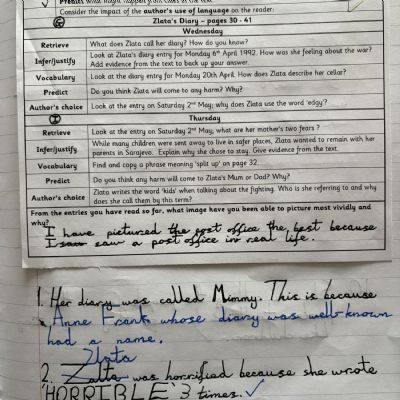 Predict what might happen from clues in the text.
Consider the impact of the author's use of language on the reader:
Zlata's Diary – pages 30 - 41
Wednesday
Retrieve What does Zlata call her diary? How do you know?
Infer/justify Look at Zlata's diary entry for Monday 6th April 1992. How was she feeling about the war?
Add evidence from the text to back up your answer.
Vocabulary Look at the diary entry for Monday 20th April. How does Zlata describe her cellar?
Predict Do you think Zlata will come to any harm? Why?
Author's choice Look at the entry on Saturday 2nd May; why does Zlata use the word 'edgy'?
Thursday
Retrieve Look at the entry on Saturday 2nd May; what are her mother's two fears ?
Infer/justify While many children were sent away to live in safer places, Zlata wanted to remain with her
parents in Sarajevo. Explain why she chose to stay. Give evidence from the text.
Vocabulary Find and copy a phrase meaning 'split up' on page 32.
Predict Do you think any harm will come to Zlata's Mum or Dad? Why?
Author's choice Zlata writes the word 'kids' when talking about the fighting. Who is she referring to and why
does she call them by this term?
From the entries you have read so far, what image have you been able to picture most vividly and
why?
I have pictured the post office the best because
I saw saw a post office in real life.
1. Her diary was called Mimmy. This is because
Anne Frank whose diary was well-known
had a name.
Zlata
2. Zalta was horrified because she wrote
'HORRIBLE' 3 times. ✓